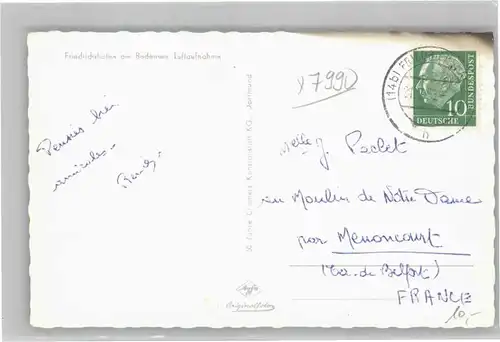 Friedrichshafen am Bodensee Luftaufnahme
Pensées bien
amicales.
y7990
50 Jahre Cramers Kunstanstalt KG, Dortmund
Melle J. Pechet
au Moulin de Notre Dame
par Menoncourt
(Ter. de Belfort)
FRANCE
10,-
(14b) FRI
h
10
DEUTSCHE
BUNDESPOST
Agfa
Originalfoto